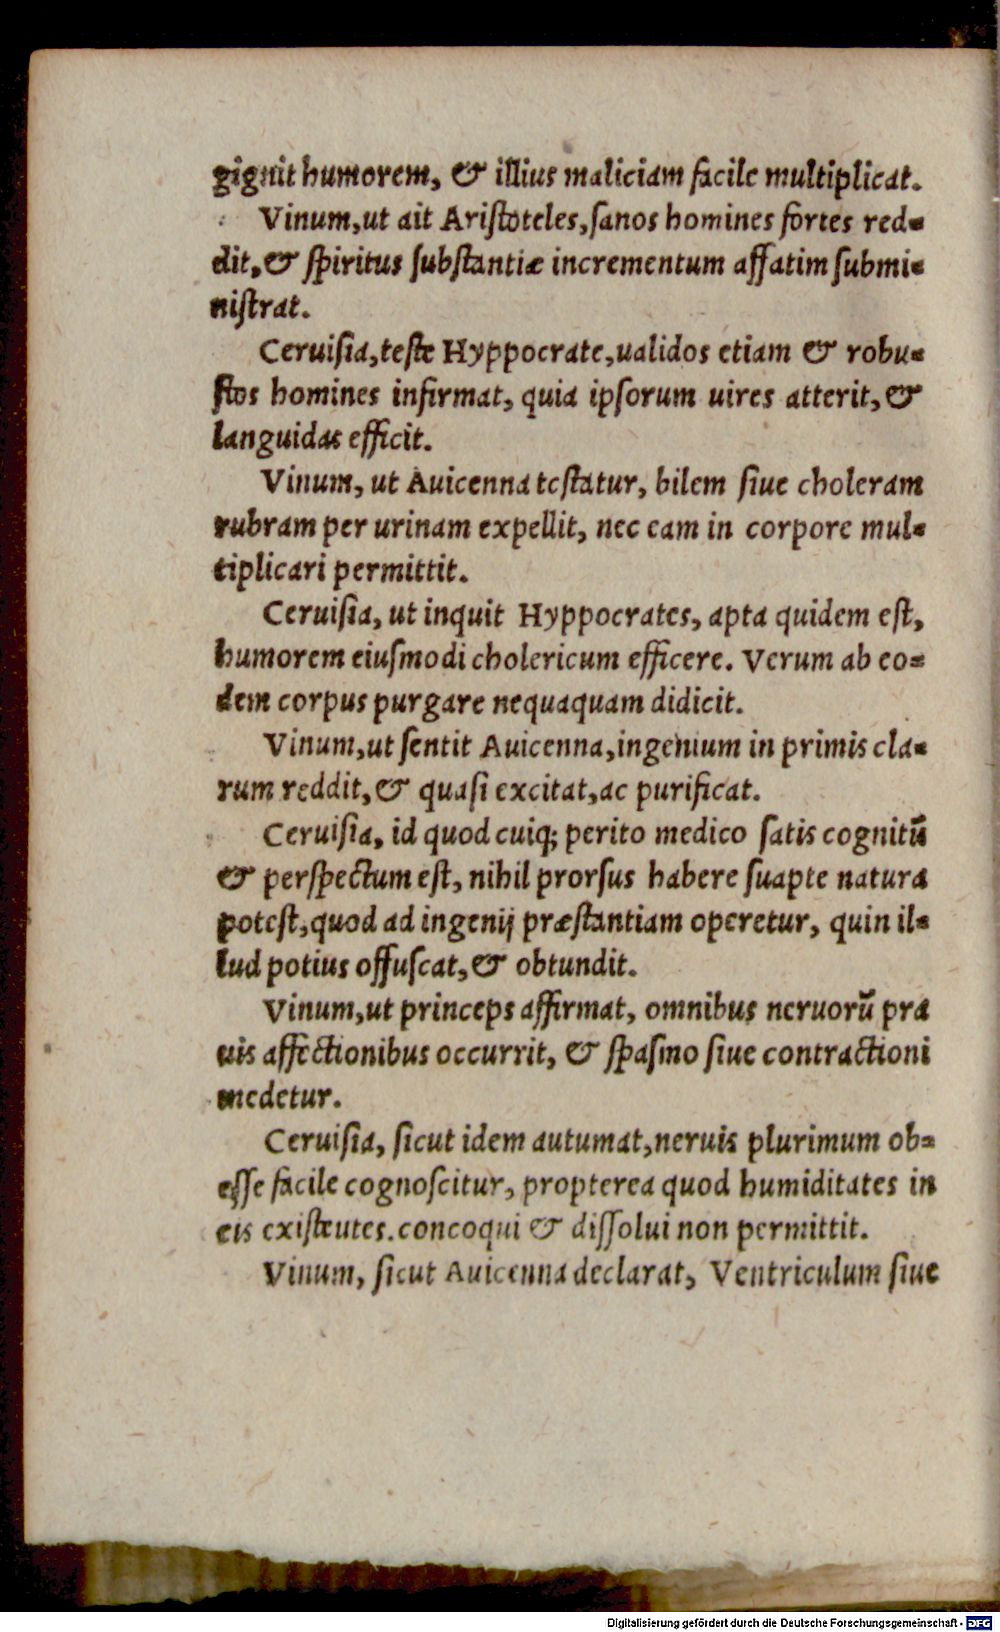 gignit humorem, & illius maliciam facile multiplicat.
Vinum, ut ait Aristoteles, sanos homines fortes red=
dit, & spiritus substantiæ incrementum affatim submi=
nistrat.
Ceruisia, teste Hyppocrate, ualidos etiam & robu=
stos homines infirmat, quia ipsorum uires atterit, &
languidas efficit.
Vinum, ut Auicenna testatur, bilem siue choleram
rubram per urinam expellit, nec eam in corpore mul=
tiplicari permittit.
Ceruisia, ut inquit Hyppocrates, apta quidem est,
humorem eiusmodi cholericum efficere. Verum ab eo=
dem corpus purgare nequaquam didicit.
Vinum, ut sentit Auicenna, ingenium in primis cla=
rum reddit, & quasi excitat, ac purificat.
Ceruisia, id quod cuiq; perito medico satis cognitũ
& perspectum est, nihil prorsus habere suapte natura
potest, quod ad ingenij præstantiam operetur, quin il=
lud potius offuscat, & obtundit.
Vinum, ut princeps affirmat, omnibus neruorũ pra
uis affectionibus occurrit, & spasmo siue contractioni
medetur.
Ceruisia, sicut idem autumat, neruis plurimum ob=
esse facile cognoscitur, propterea quod humiditates in
eis existeutes. concoqui & dissolui non permittit.
Vinum, sicut Auicenna declarat, Ventriculum siue
Digitalisierung gefördert durch die Deutsche Forschungsgemeinschaft - DFG